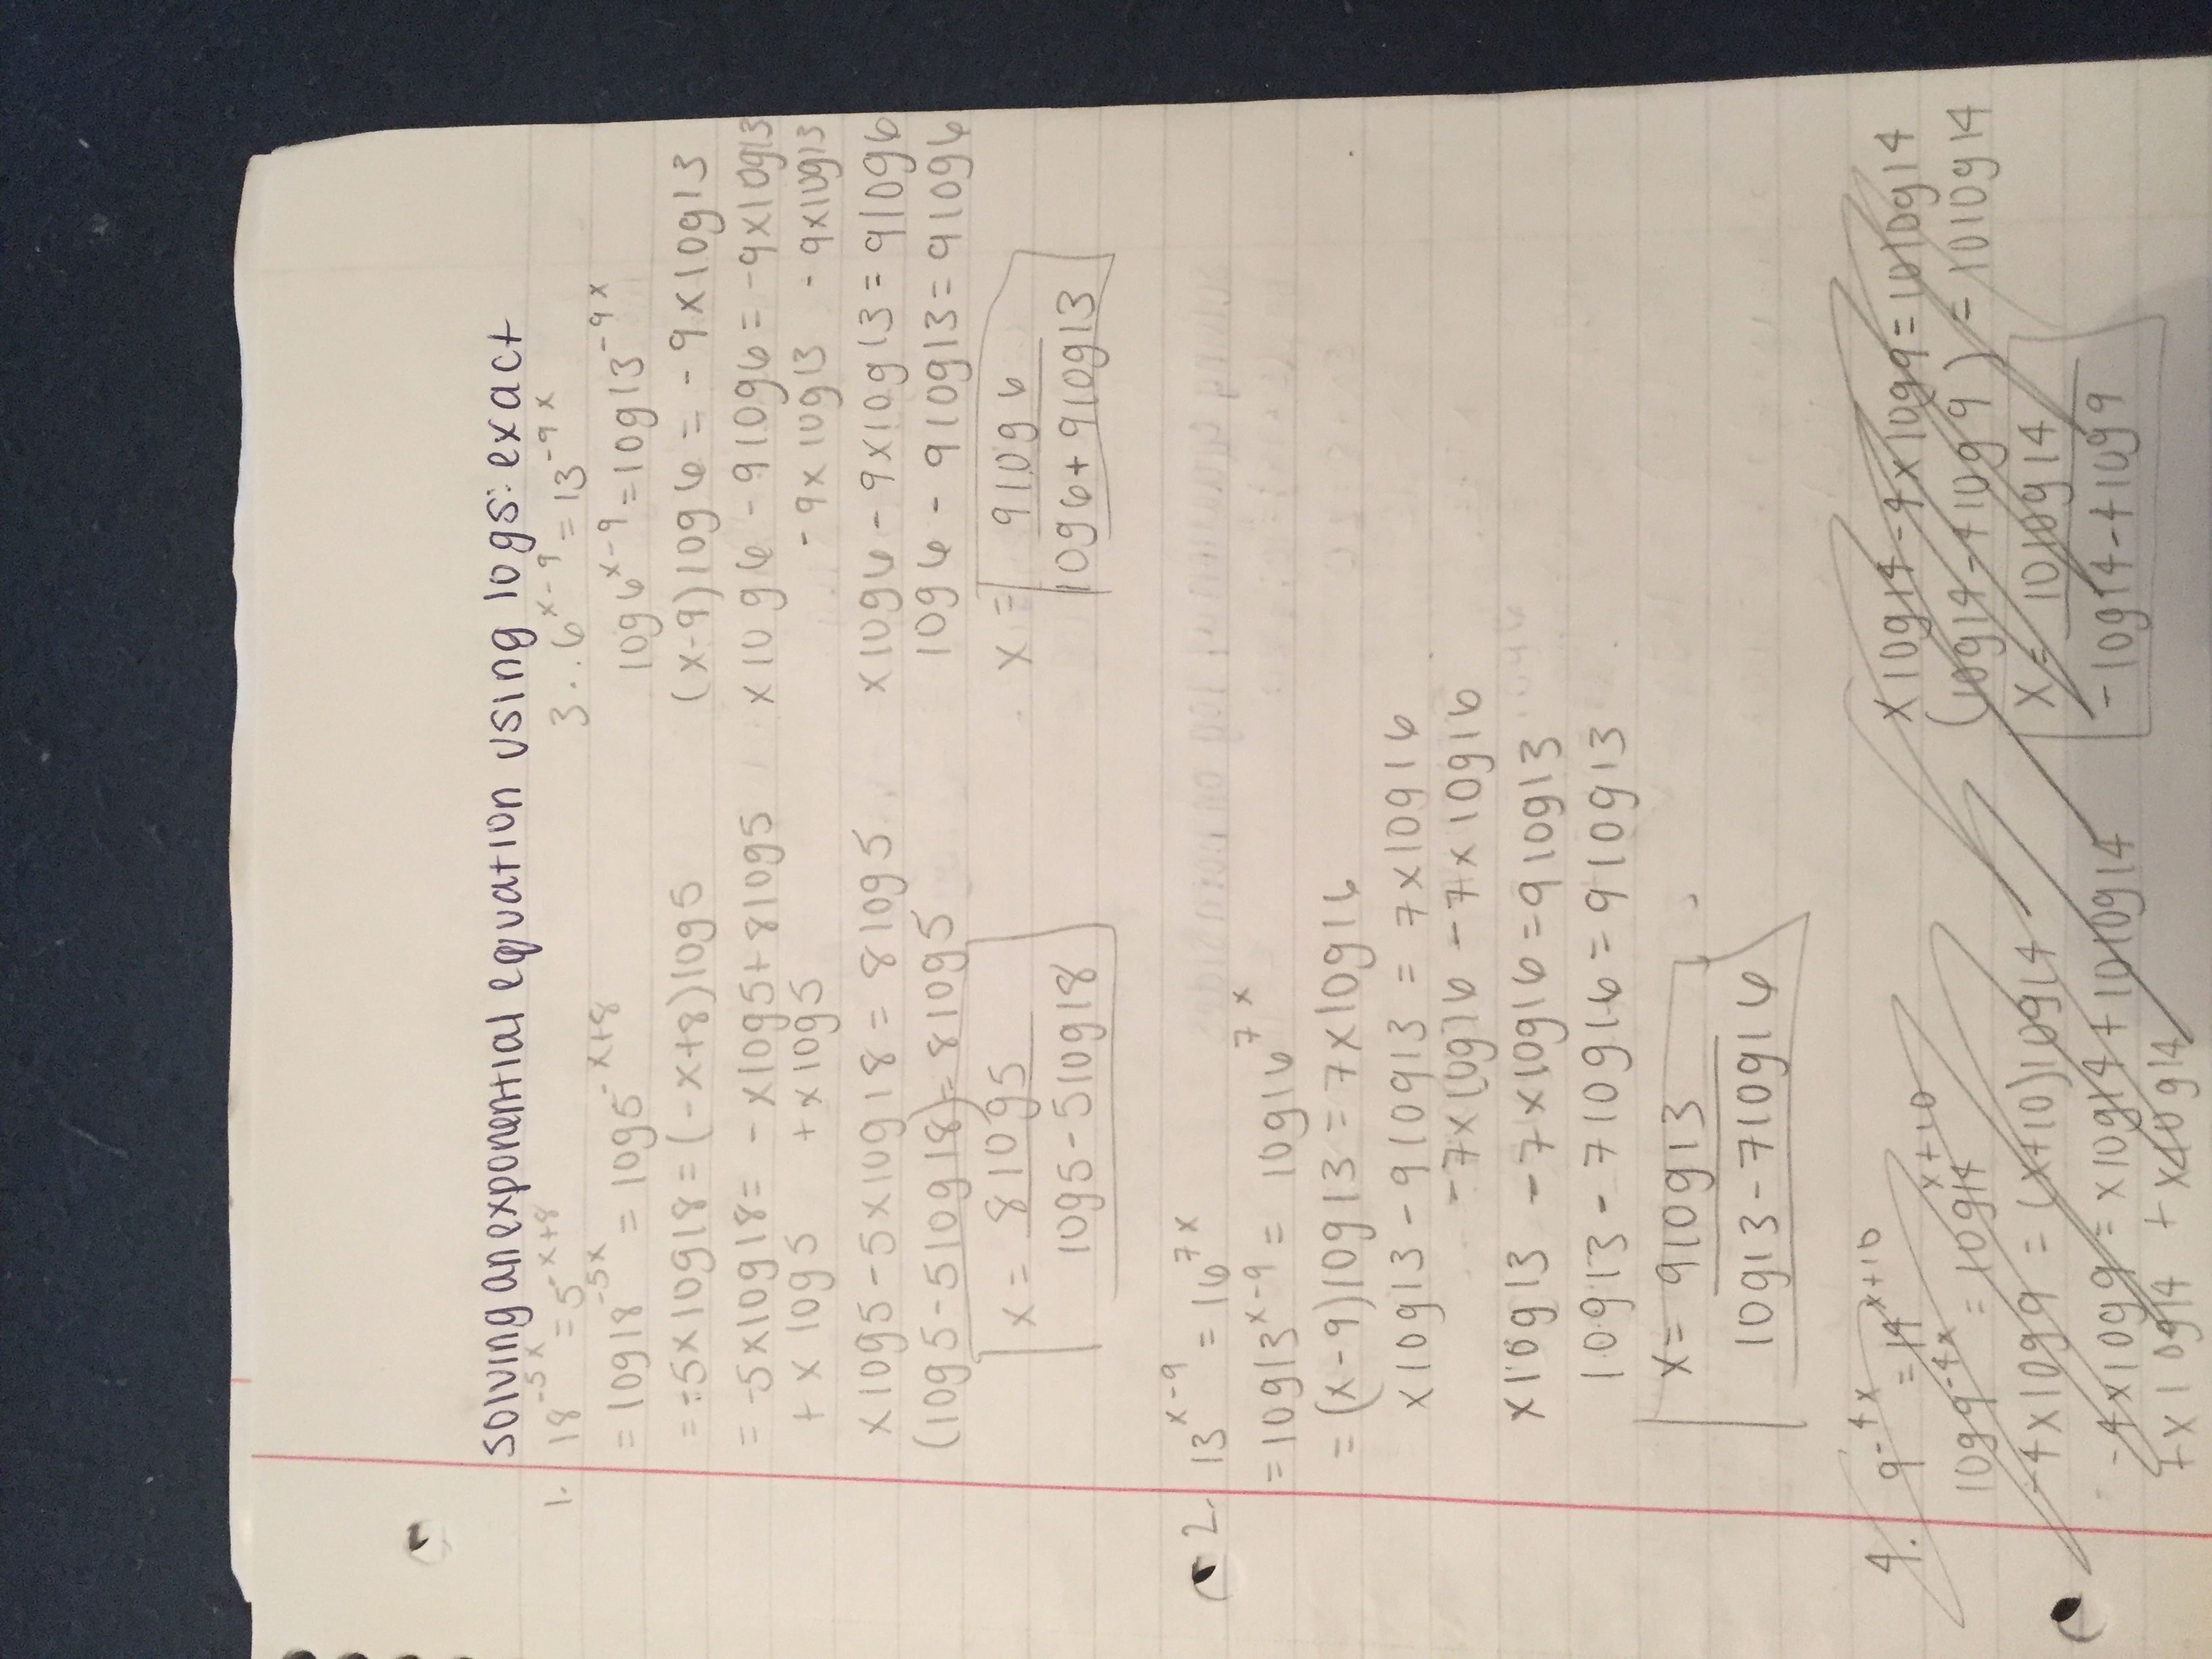 solving an exponential equation using logs: exact
1. 18^-5x = 5^-x+8
= log18^-5x = log5^-x+8
= -5xlog18 = (-x+8)log5
= -5xlog18 = -xlog5+8log5
+ x log5 + xlog5
xlog5 - 5xlog18 = 8log5
(log5 - 5log18) = 8log5
x = 8log5
log5 - 5log18
2. 13^x-9 = 16^7x
= log13^x-9 = log16^7x
= (x-9)log13 = 7xlog16
xlog13 - 9log13 = 7xlog16
-7xlog16 -7xlog16
xlog13 - 7xlog16 = 9log13
log13 - 7log16 = 9log13
x = 9log13
log13 - 7log16
3. 6^x-9 = 13^-9x
log6^x-9 = log13^-9x
(x-9)log6 = -9xlog13
xlog6 - 9log6 = -9xlog13
-9xlog13 -9xlog13
xlog6 - 9xlog13 = 9log6
log6 - 9log13 = 9log6
x = 9log6
log6+9log13
4. 9^-4x = 14^x+10
log9^-4x = log14^x+10
-4xlog9 = (x+10)log14
-4xlog9 = xlog14+10log14
+xlog14 + xlog14
xlog14 - 4xlog9 = 10log14
(log14 - 4log9) = 10log14
x = 10log14
-log14-4log9